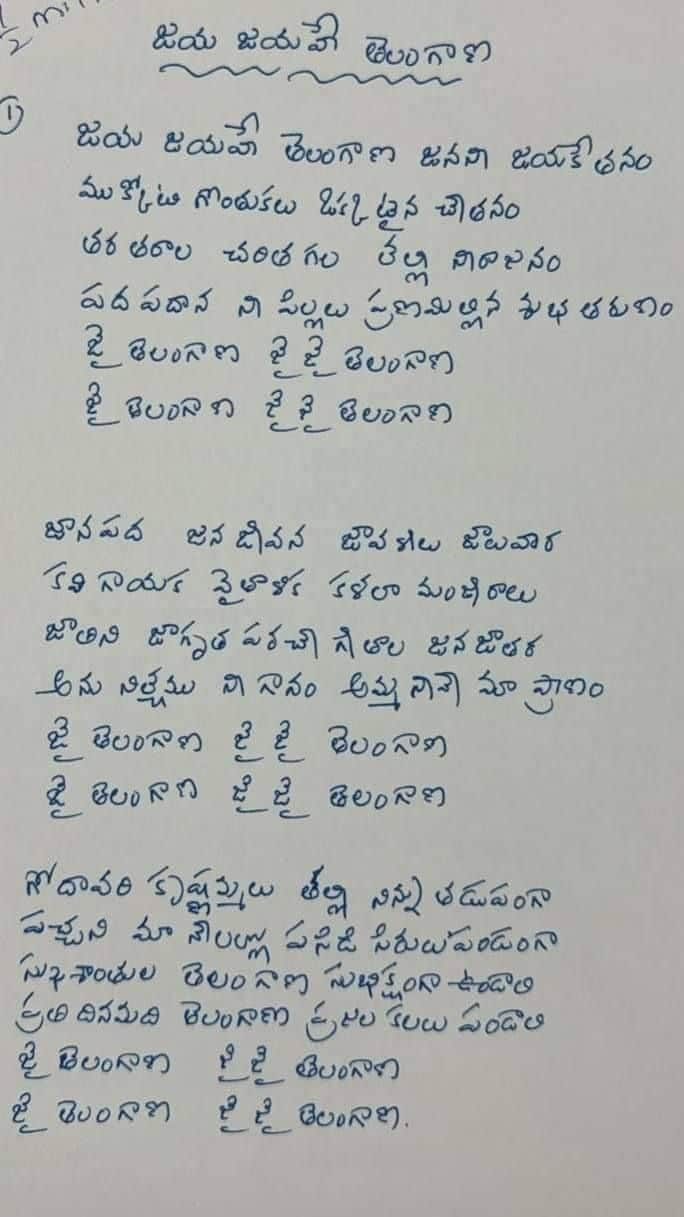 1/2 min
జయ జయహే తెలంగాణ
1
జయ జయహే తెలంగాణ జనని జయకేతనం
ముక్కోటి గొంతుకలు ఒక్కటైన చేతనం
తర తరాల చరిత గల తల్లి నిరాజనం
పద పదాన ని పిల్లలు ప్రణమిల్లిన శుభ తరుణం
జై తెలంగాణ జై జై తెలంగాణ
జై తెలంగాణ జై జై తెలంగాణ
జానపద జన జీవన జావళీలు జాలువార
కవి గాయక వైతాళిక కళలా మంజీరాలు
జాతిని జాగృత పరచే గీతాల జన జాతర
అను నిత్యము ని గానం అమ్మ నీవే మా ప్రాణం
జై తెలంగాణ జై జై తెలంగాణ
జై తెలంగాణ జై జై తెలంగాణ
గోదావరి కృష్ణమ్మలు తల్లి నిన్ను తడుపంగా
పచ్చని మా నేలల్లో పసిడి సిరులు పండంగా
సుఖశాంతుల తెలంగాణ సుభిక్షంగా ఉండాలి
ప్రతి దినమది తెలంగాణ ప్రజల కలలు పండాలి
జై తెలంగాణ జై జై తెలంగాణ
జై తెలంగాణ జై జై తెలంగాణ.